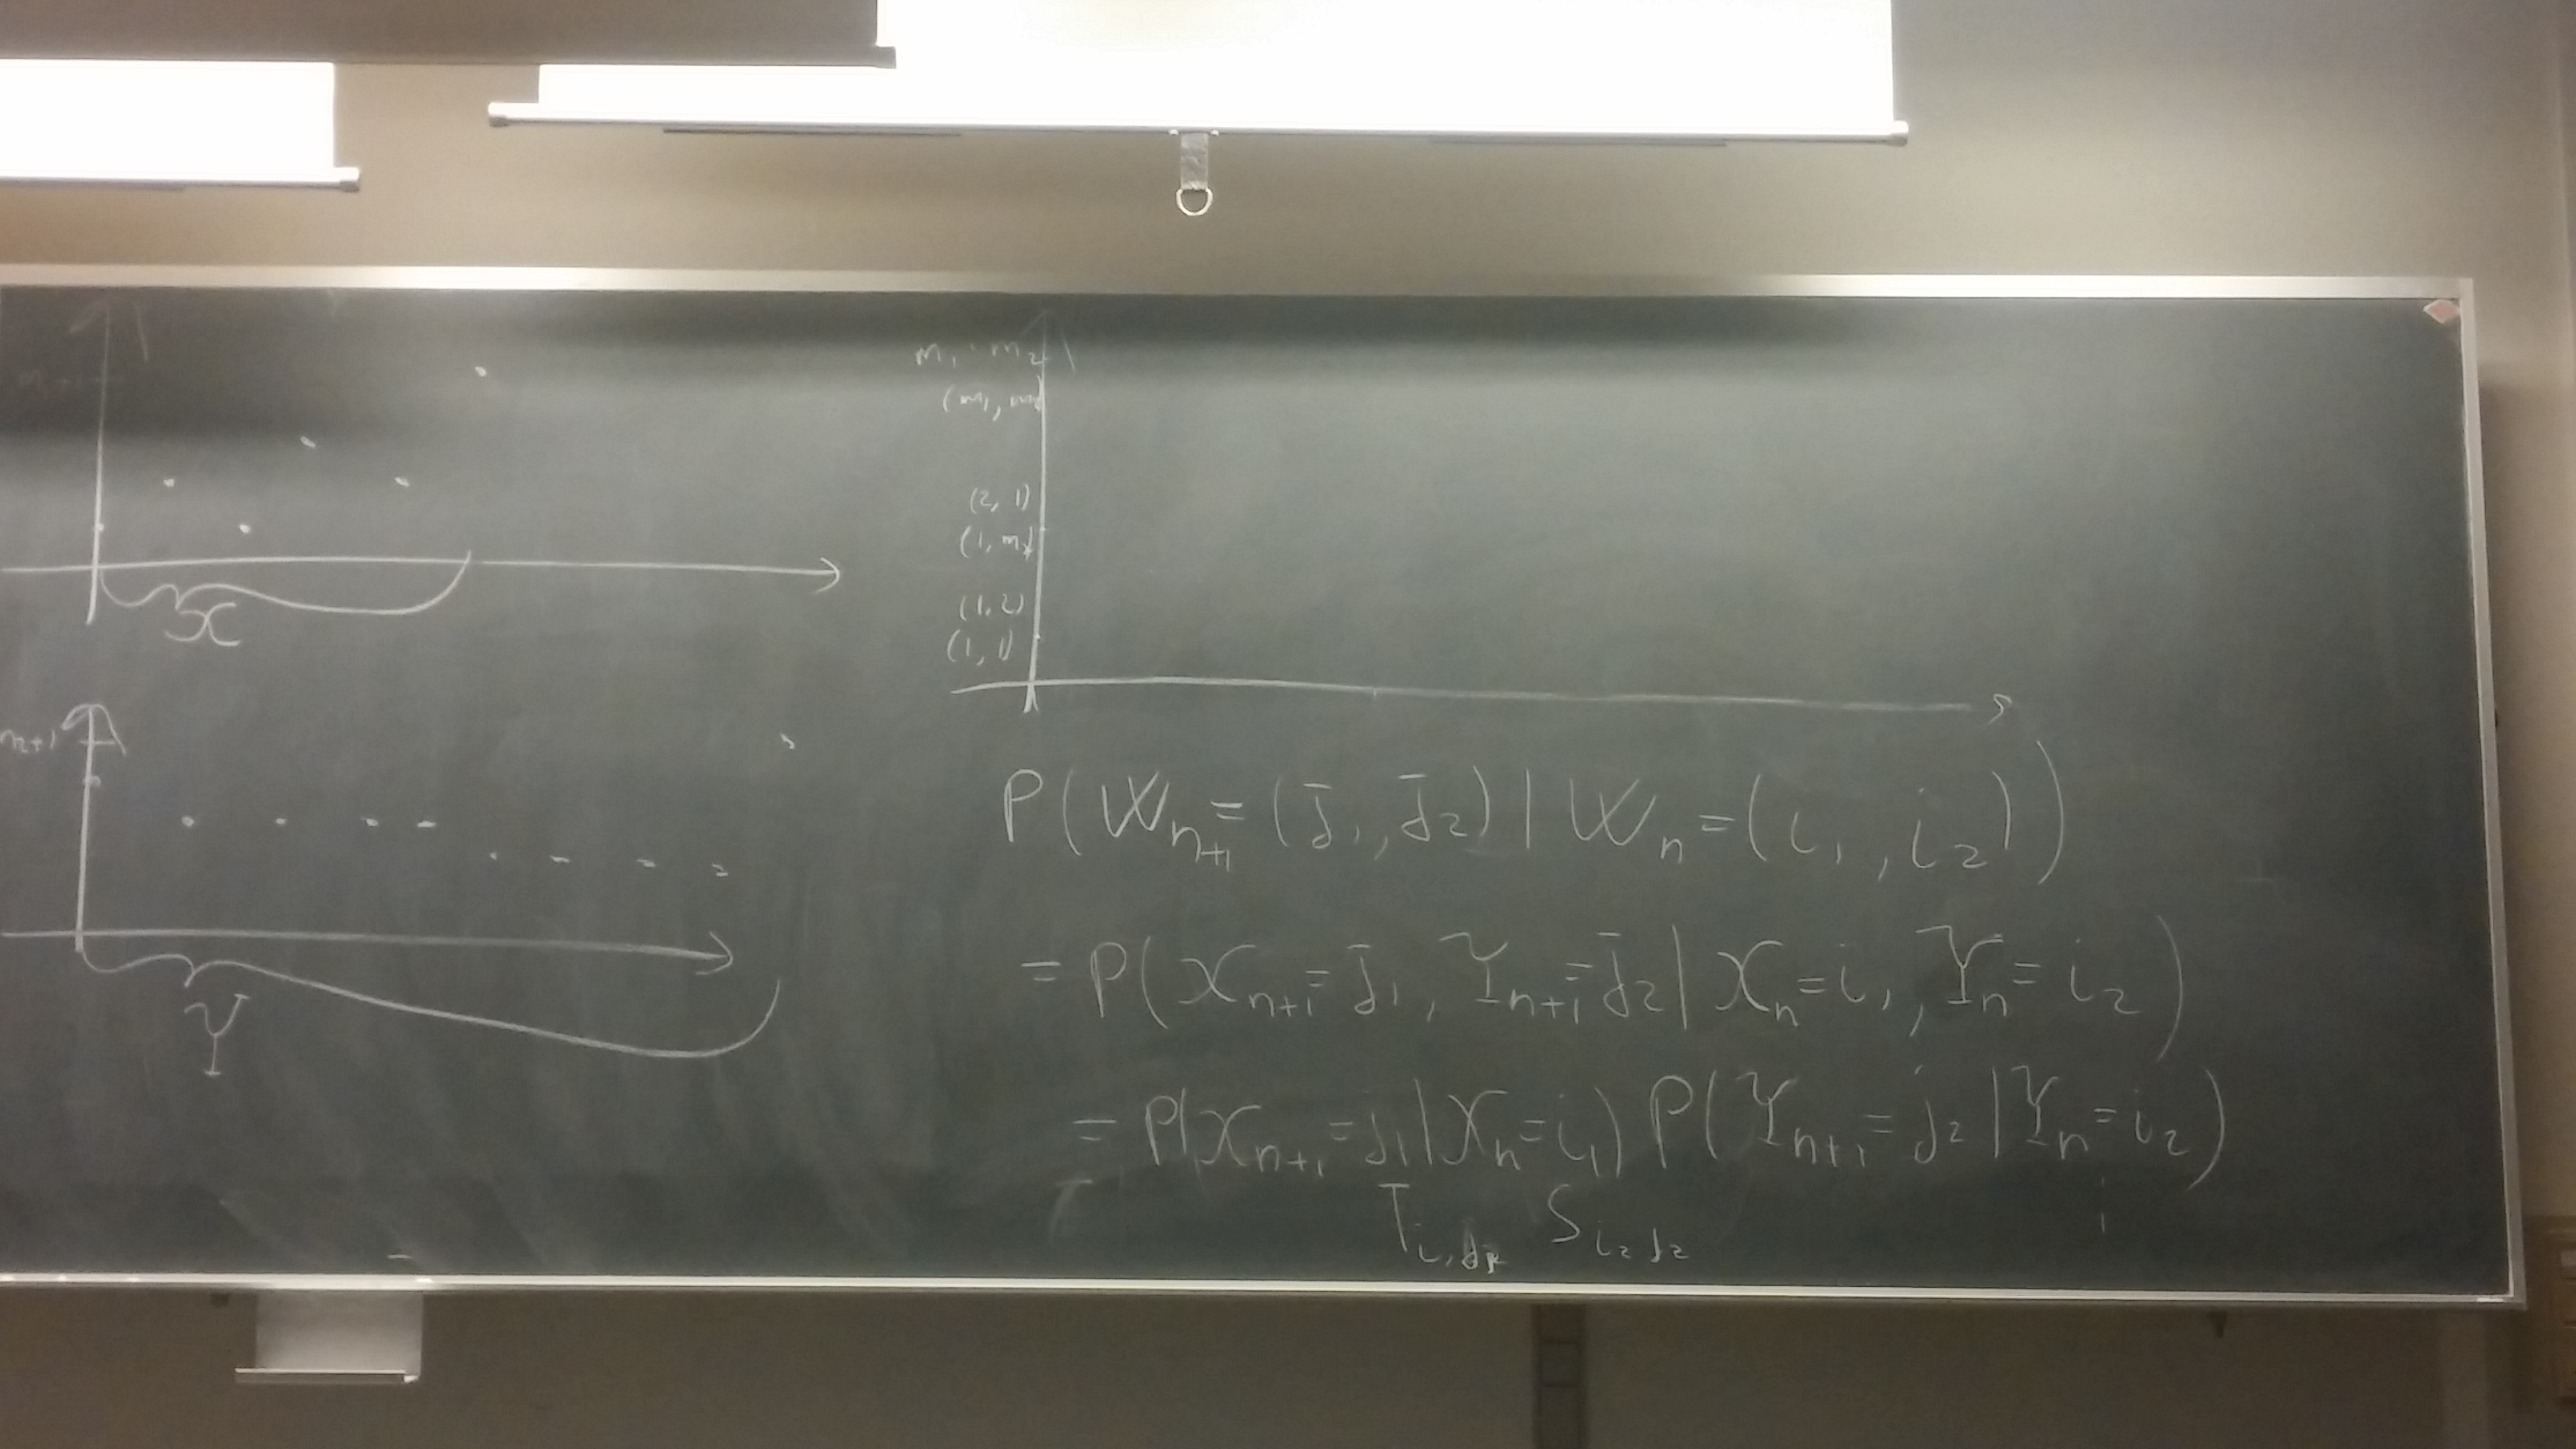 𝒳
n₂+1
Y
m₁ · m₂
(m₁, m₂)
(2, 1)
(1, m₂)
(1, 2)
(1, 1)
P(Wₙ₊₁=(j₁, j₂) | Wₙ=(i₁, i₂))
= P(Xₙ₊₁=j₁, Yₙ₊₁=j₂ | Xₙ=i₁, Yₙ=i₂)
= P(Xₙ₊₁=j₁ | Xₙ=i₁) P(Yₙ₊₁=j₂ | Yₙ=i₂)
T i₁ j₁ S i₂ j₂